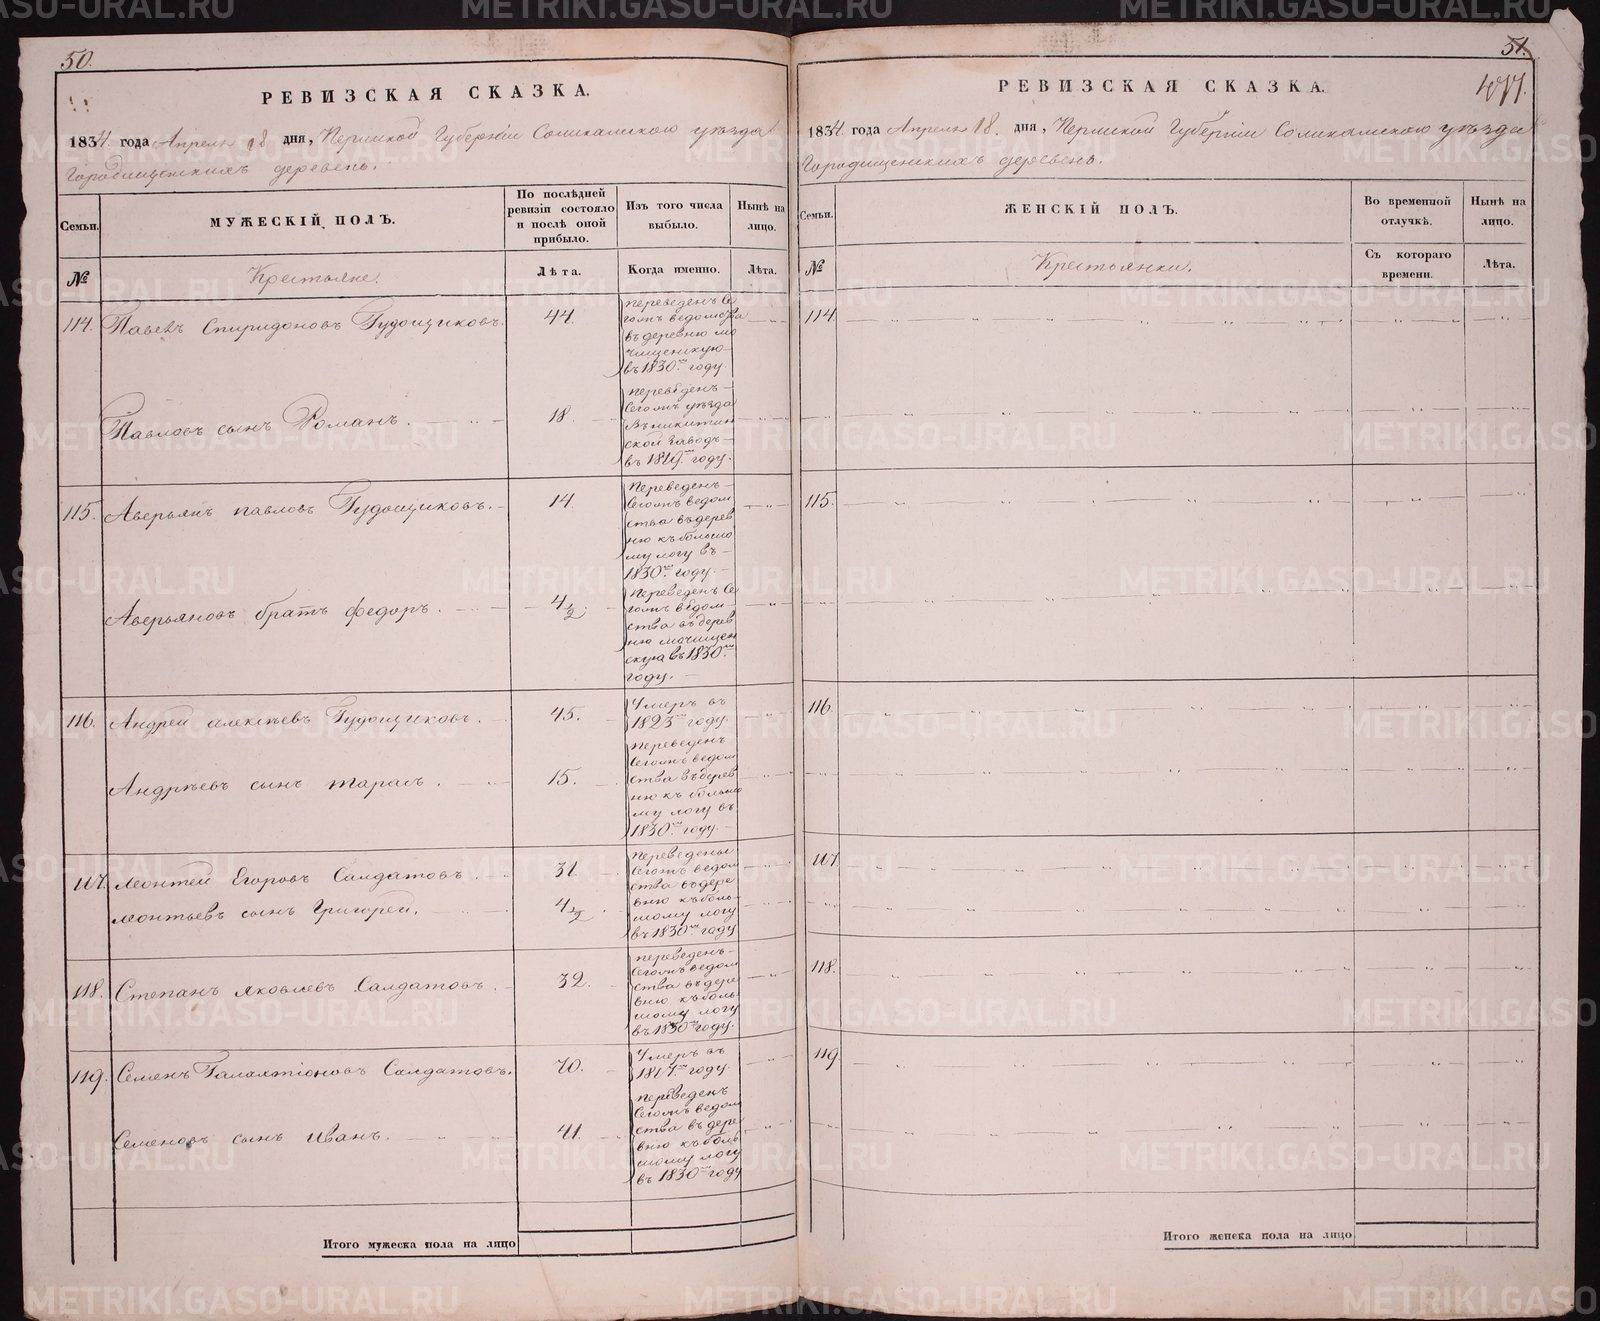 50.
РЕВИЗСКАЯ СКАЗКА.
1834. года Апреля 18 дня, Пермской Губернии Соликамскаго уѣзда
Городищенскихъ деревень.
Семьи.
МУЖЕСКІЙ ПОЛЪ.
По послѣдней
ревизіи состояло
и послѣ оной
прибыло.
Изъ того числа
выбыло.
Нынѣ на
лицо.
№
Крестьяне.
Лѣта.
Когда именно.
Лѣта.
114. Павелъ Спиридоновъ Гудощиковъ. 44.
переведенъ Се
гожъ ведомства
въ деревню мо
чищенскую
въ 1830.мъ году.
Павловъ сынъ Романъ. 18
переведенъ
Сегожъ уѣзда
въ никитин
ской заводъ
въ 1819.мъ году.
115. Аверьянъ павловъ Гудощиковъ. 14.
Переведенъ
Сегожъ ведом
ства въ дерев
ню къ большо
му логу въ
1830.мъ году.
Аверьяновъ братъ федоръ. 4 1/2
Переведенъ Се
гожъ ведом
ства въ дерев
ню мочищен
скую въ 1830.мъ
году.
116. Андрей алексѣевъ Гудощиковъ. 45.
Умеръ въ
1823мъ году.
Андрѣевъ сынъ тарасъ. 15.
переведенъ
Сегожъ ведом
ства въ дерев
ню къ большо
му логу въ
1830.мъ году.
117. Леонтей Егоровъ Салдатовъ. 31.
леонтьевъ сынъ Григорей. 4 1/2.
переведены
Сегожъ ведом
ства въ дере
вню къ боль
шому логу
въ 1830мъ году
118. Степанъ яковлевъ Салдатовъ. 32.
переведенъ
Сегожъ ведом
ства въ дере
вню къ боль
шому логу
въ 1830мъ году.
119. Семенъ Галахтіоновъ Салдатовъ. 70.
Умеръ въ
1817.мъ году.
Семеновъ сынъ иванъ. 41.
переведенъ
Сегожъ ведом
ства въ дере
вню къ боль
шому логу
въ 1830мъ году
Итого мужеска пола на лицо
51.
РЕВИЗСКАЯ СКАЗКА.
1834. года Апреля 18. дня, Пермской Губерніи Соликамскаго уѣзда
Городищенскихъ деревень.
Семьи.
ЖЕНСКІЙ ПОЛЪ.
Во временной
отлучкѣ.
Нынѣ на
лицо.
№
Крестьянки.
Съ котораго
времени.
Лѣта.
114.
115.
116.
117.
118.
119.
Итого женска пола на лицо
METRIKI.GASO-URAL.RU